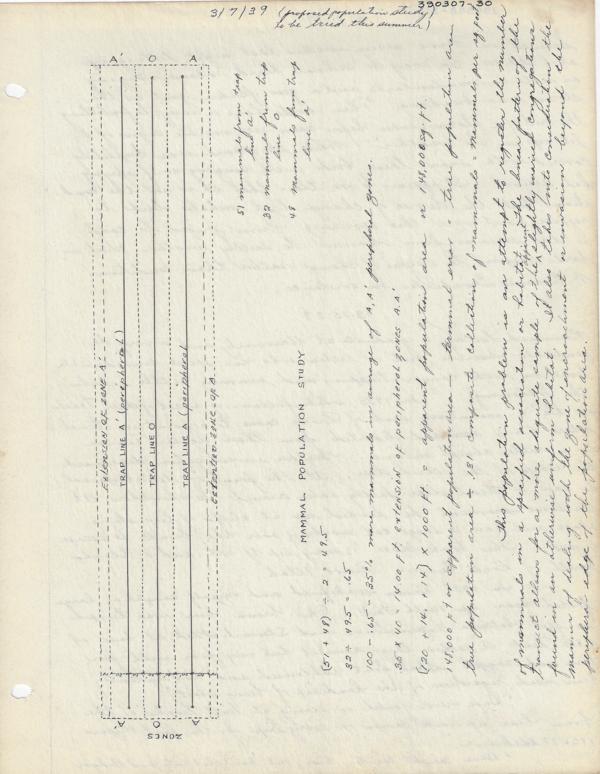 390307-30
3/7/39 (proposed population study)
to be tried this summer)
A' O A
EXTENSION OF ZONE A'
TRAP LINE A' (peripheral)
TRAP LINE O
TRAP LINE A (peripheral
EXTENTION ZONE OF A
A' O A
ZONES
51 mammals from trap
line a'
32 mammals from trap
line O
48 mammals from trap
line a'
MAMMAL POPULATION STUDY
(51 + 48) ÷ 2 = 49.5
32 ÷ 49.5 = .65
100 - .65 = 35% more mammals in average of A, A' peripheral zones.
35 x 40 = 14.00 ft. extension of peripheral zones A.A'
(120 + 14. + 14) x 1000 ft. = apparent population area or 148,000 sq. ft.
148,000 ft or apparent population area — terminal error = true population area
true population area ÷ 131 composite collection of mammals = mammals per sq. foot
This population problem is an attempt to register the number
of mammals in a specified association or habitat. The linear pattern of the
transect allows for a more adequate sample of the apparent slightly varied congregations
found in an otherwise uniform habitat. It also takes into consideration the
manner of dealing with the zone of encroachment or invasion beyond the
peripheral edge of the population area.